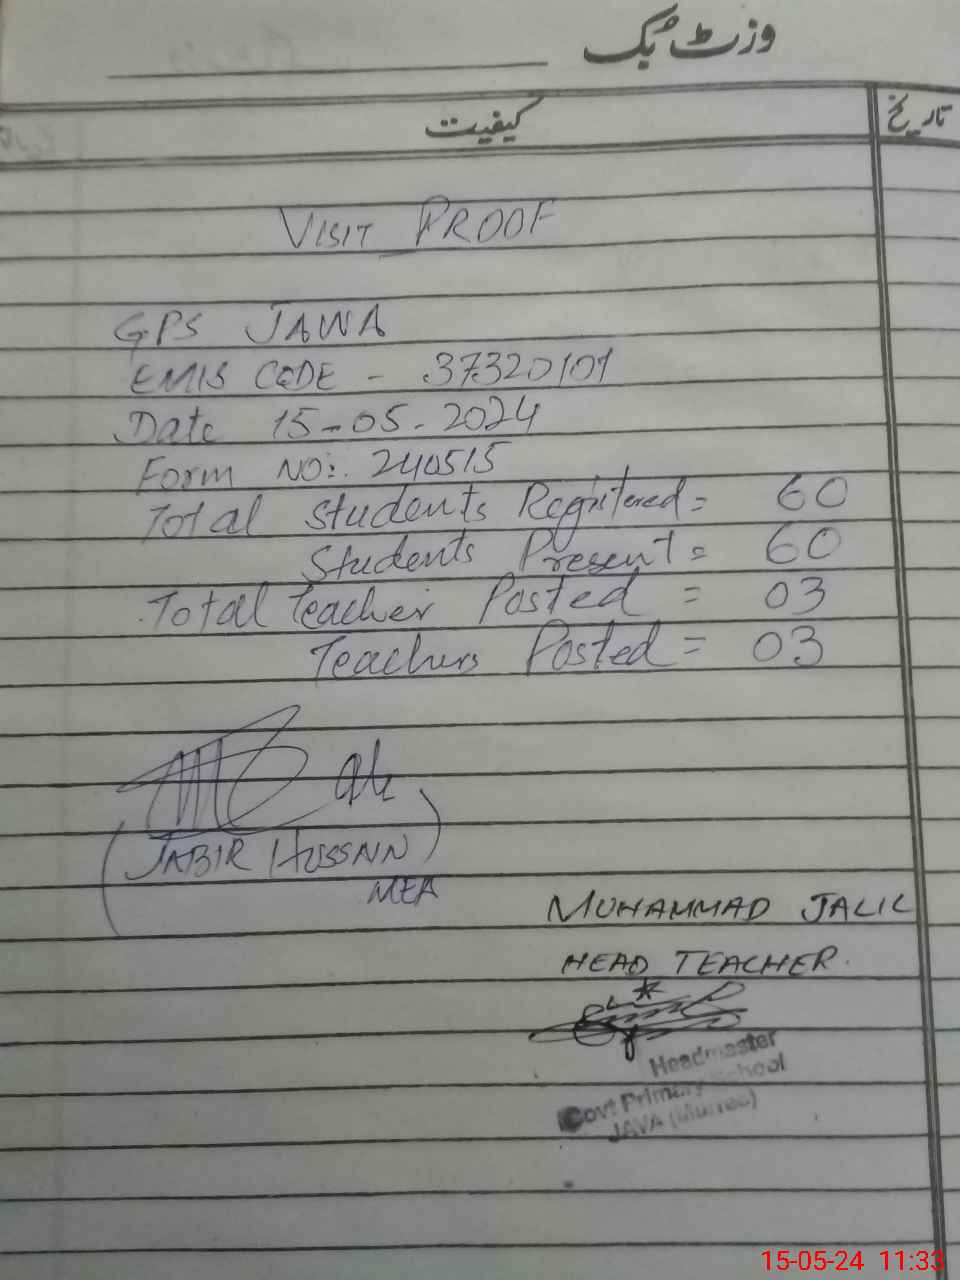 وزٹ بُک
کیفیت
تاریخ
VISIT PROOF
GPS JAWA
EMIS CODE - 37320101
Date 15-05-2024
Form NO: 240515
Total Students Registered = 60
Students Present = 60
Total Teacher Posted = 03
Teachers Posted = 03
(JABIR HUSSAIN)
MEA
MUHAMMAD JALIL
HEAD TEACHER.
Headmaster
Govt Primary School
JAVA (Murree)
15-05-24 11:33